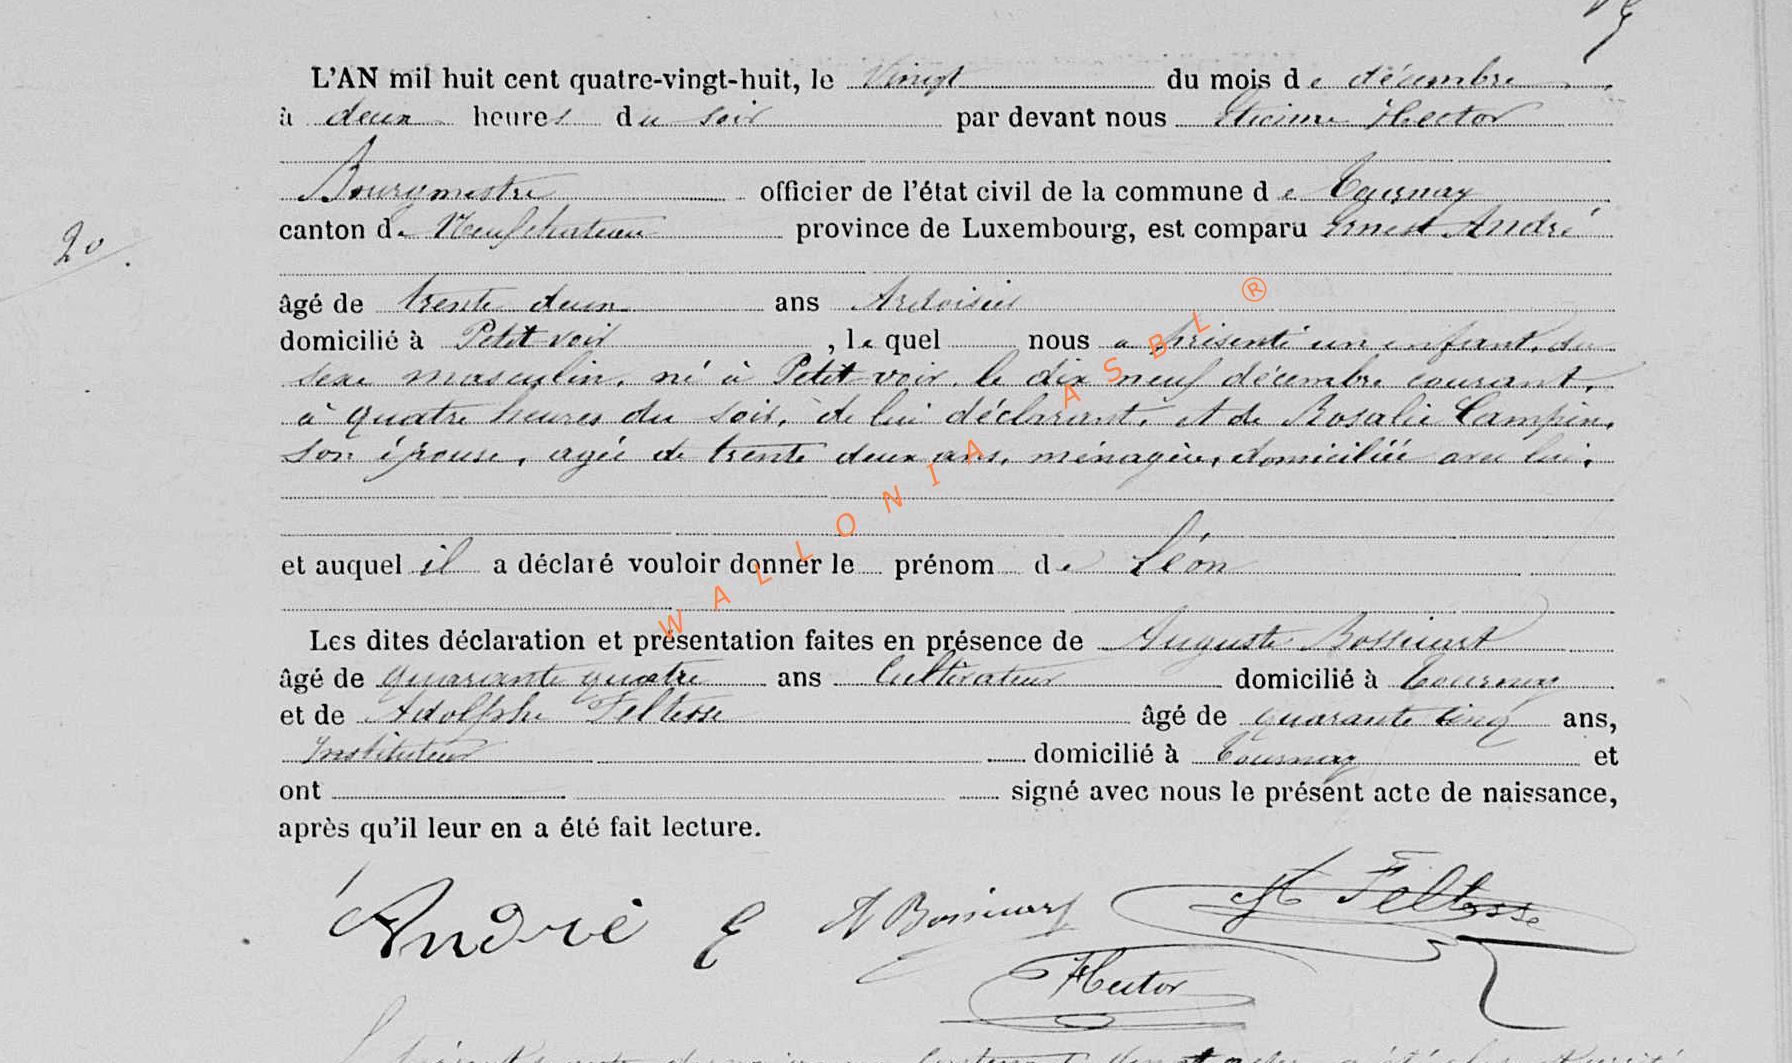 L'AN mil huit cent quatre-vingt-huit, le vingt du mois de décembre
à deux heures du soir par devant nous Etienne Hector
Bourgmestre officier de l'état civil de la commune de Tournay
20.
canton de Neufchateau province de Luxembourg, est comparu Ernest André
âgé de trente deux ans Ardoisier
domicilié à Petit-voir, lequel nous a présenté un enfant, du
sexe masculin, né à Petit-voir, le dix neuf décembre courant,
à quatre heures du soir, de lui déclarant, et de Rosalie Campin,
son épouse, agée de trente deux ans, ménagère, domiciliée avec lui.
et auquel il a déclaré vouloir donner le prénom de Léon
Les dites déclaration et présentation faites en présence de Auguste Bossicart
âgé de quarante quatre ans Cultivateur domicilié à Tournay
et de Adolphe Feltesse âgé de quarante cinq ans,
Instituteur domicilié à Tournay et
ont signé avec nous le présent acte de naissance,
après qu'il leur en a été fait lecture.
André E A Bossicart A Feltesse
Hector
WALLONIA ASBL ®